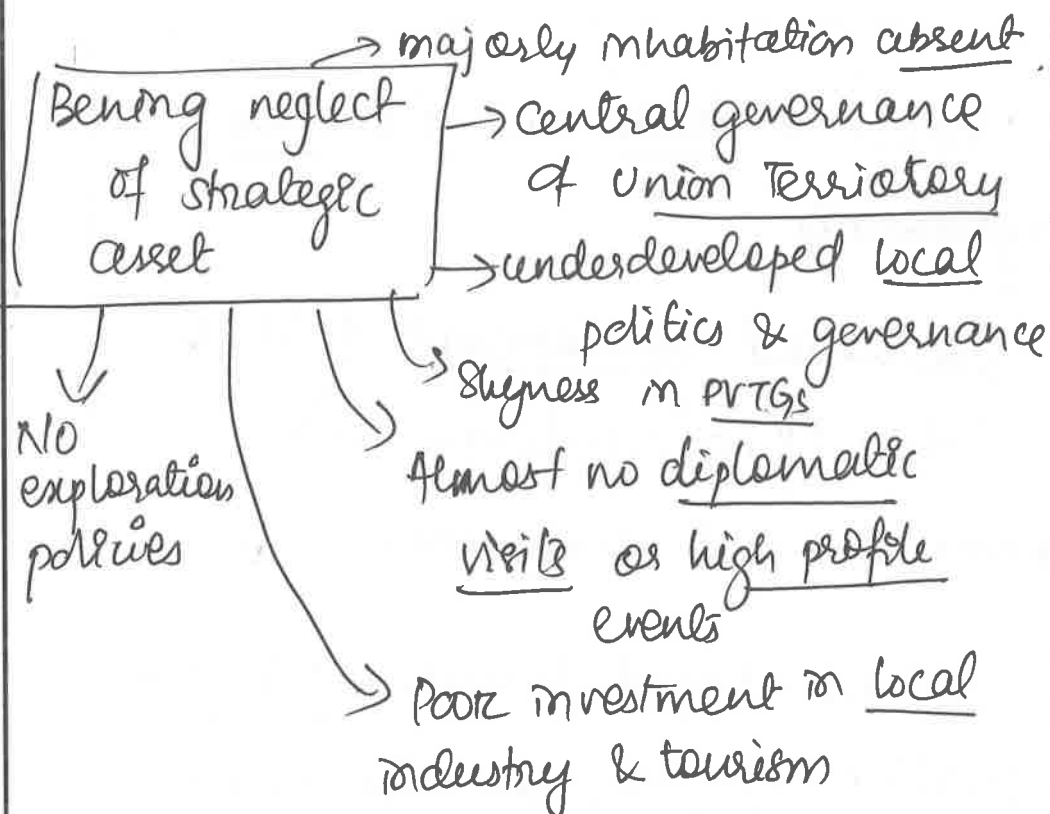 Bening neglect
of strategic
asset
→ majorly inhabitation absent
→ Central governance
of Union Terriotory
→ underdeveloped local
politics & governance
Shyness in PVTGs
Almost no diplomatic
visits or high profile
events
Poor investment in local
industry & tourism
NO
exploration
policies